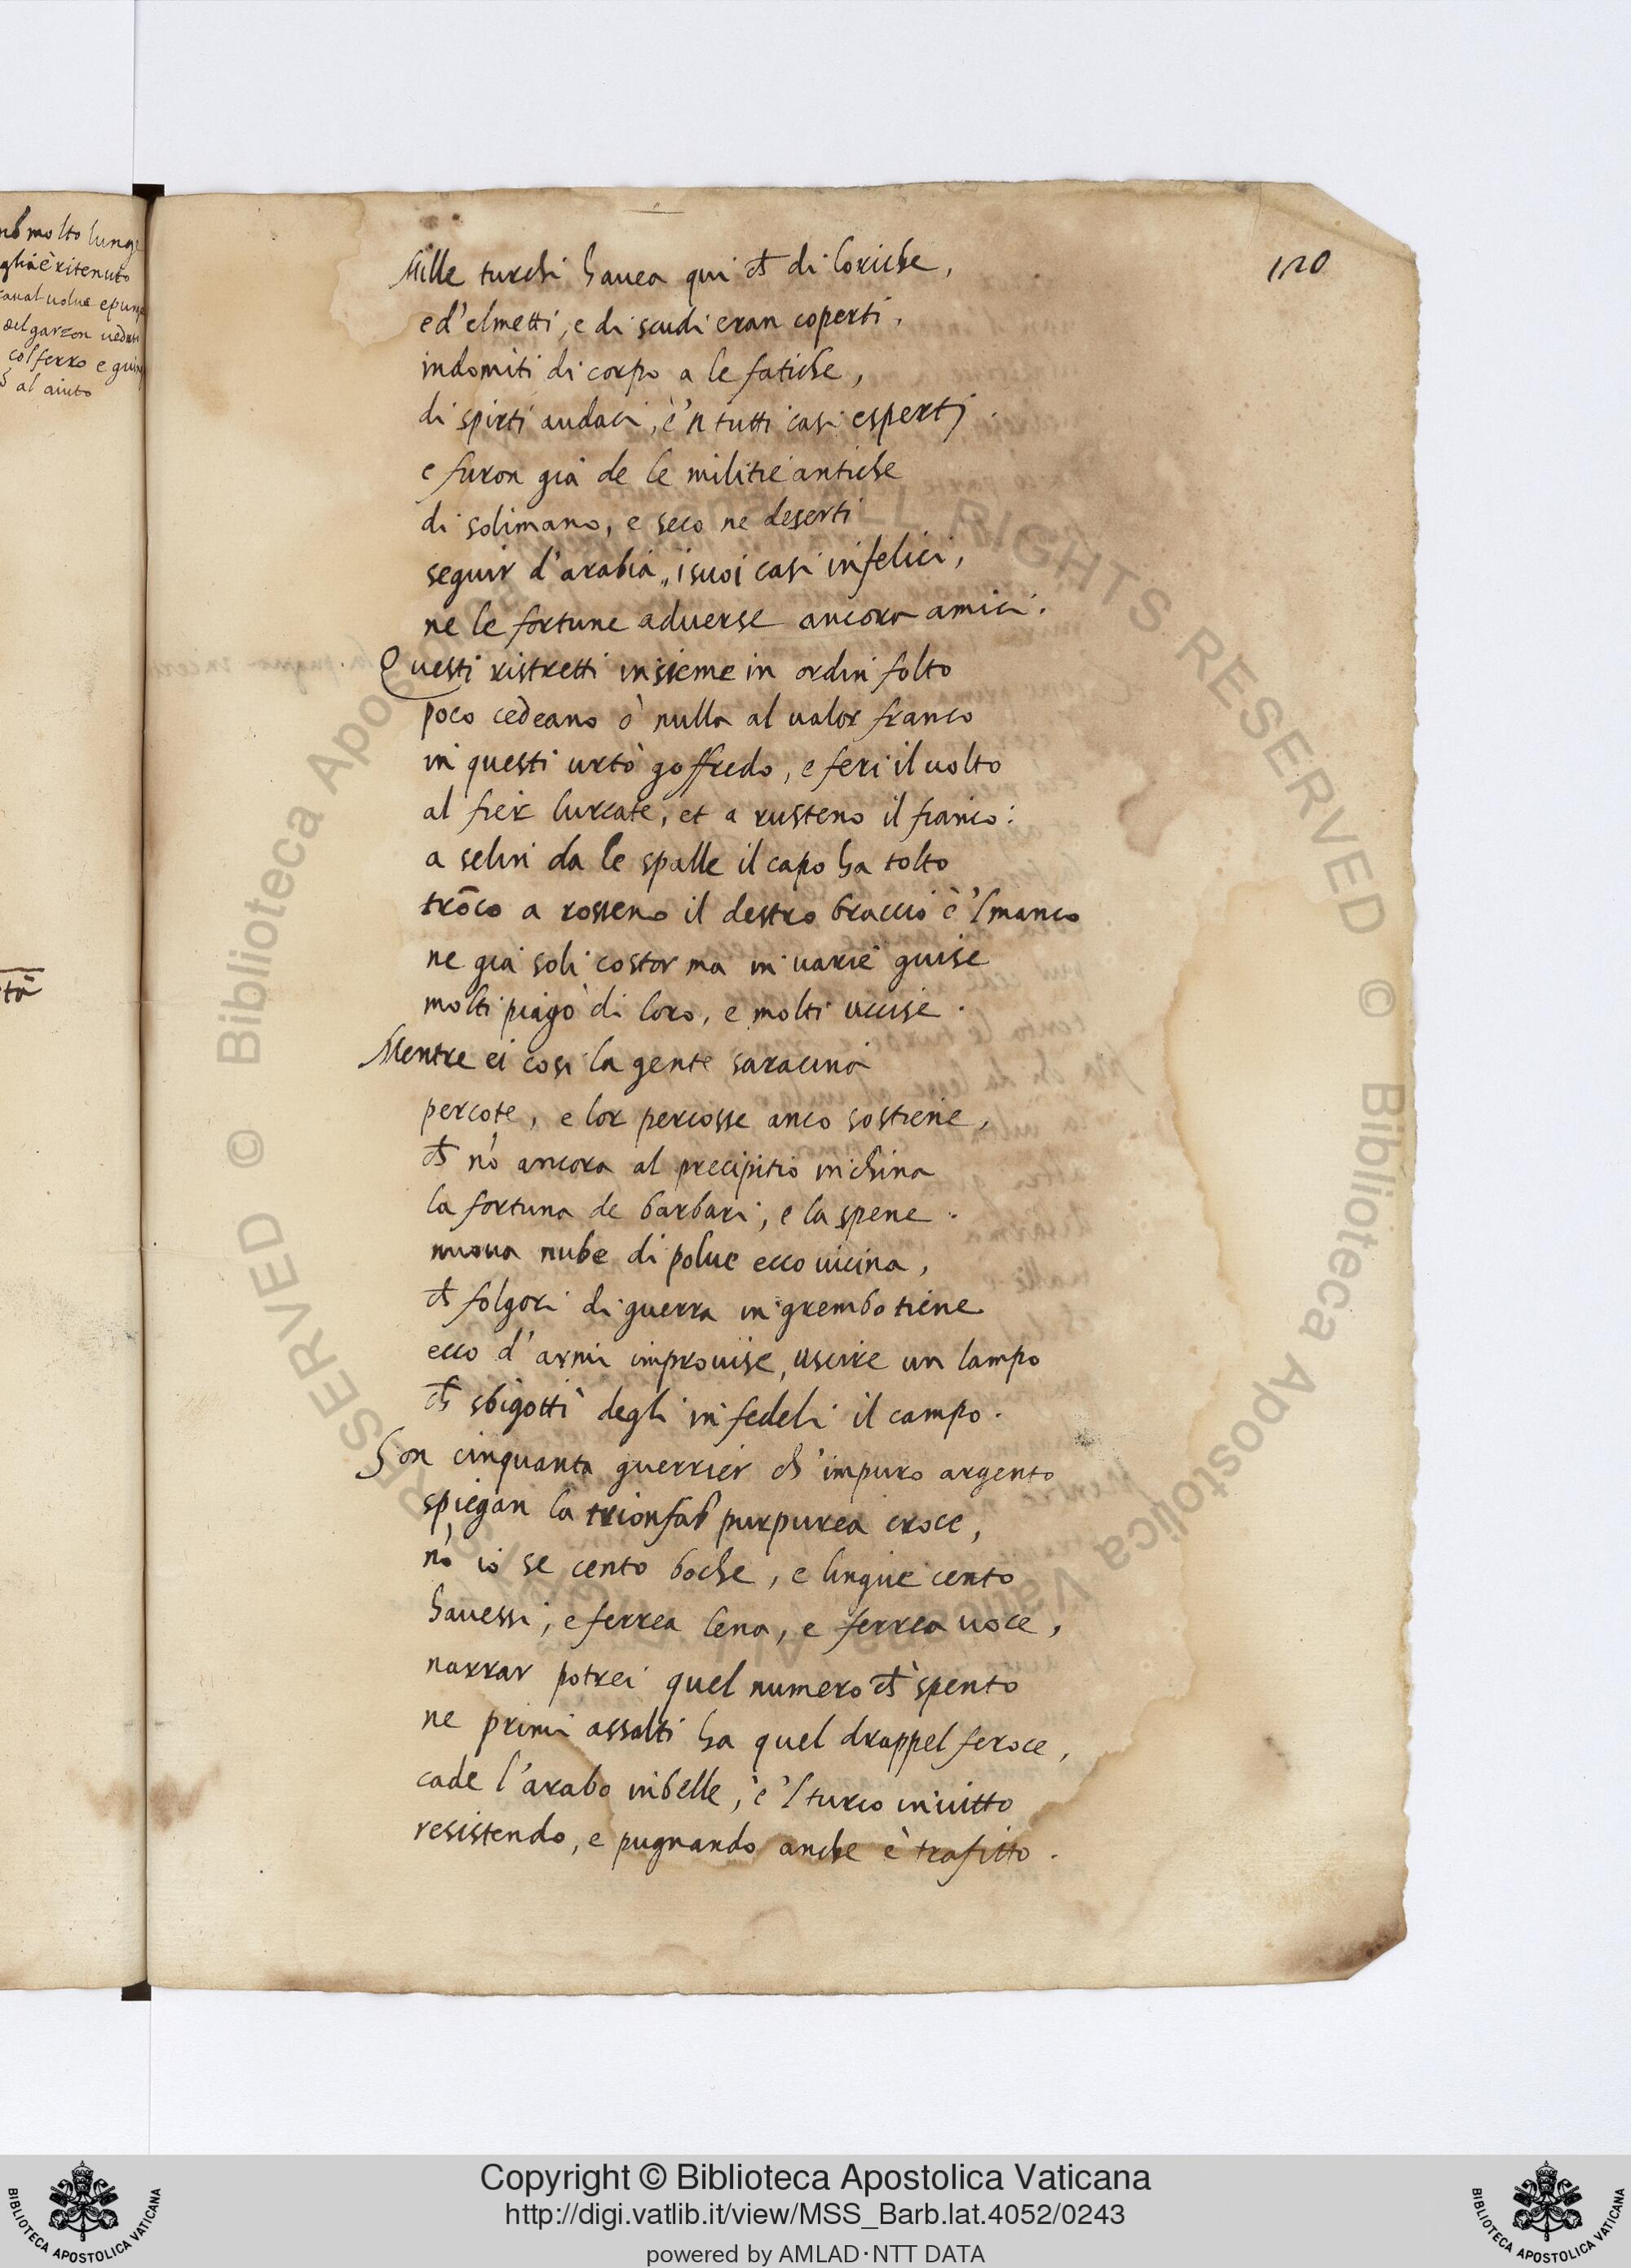 no molto lunge
glia è ritenuto
caual uolue e pung
del garzon ueduto
col ferro e giu
al aiuto
120
Mille turchi hauea qui ch̄ di loriche,
e d'elmetti, e di scudi eran coperti,
indomiti di corpo a le fatiche,
di spirti audaci, è'n tutti casi esperti.
e furon già de le militie antiche
di solimano, e seco ne deserti
seguir d'arabia, i suoi casi infelici,
ne le fortune aduerse ancora amici.
Questi ristretti insieme in ordin folto
poco cedeano ò nulla al ualor franco
in questi urtò goffredo, e ferì il uolto
al fier curcate, et a rusteno il fianco:
a selin da le spalle il capo ha tolto
trōco a rosseno il destro braccio è'l manco
ne già soli costor ma in uarie guise
molti piagò di loro, e molti uccise.
Mentre ei così la gente saracina
percote, e lor percosse anco sostiene,
ch̄ nō ancora al precipitio inchina
la fortuna de barbari, e la spene.
nuoua nube di polue ecco uicina,
ch̄ folgori di guerra in grembo tiene
ecco d'armi improuise, uscire un lampo
ch̄ sbigottì degli infedeli il campo.
Son cinquanta guerrier ch'impuro argento
spiegan la trionfal purpurea croce,
nō io se cento boche, e lingue cento
hauessi, e ferrea lena, e ferrea uoce,
narrar potrei quel numero ch̄ spento
ne primi assalti ha quel drappel feroce,
cade l'arabo imbelle, è'l turco inuitto
resistendo, e pugnando anche è trafitto.
Copyright © Biblioteca Apostolica Vaticana
http://digi.vatlib.it/view/MSS_Barb.lat.4052/0243
powered by AMLAD·NTT DATA